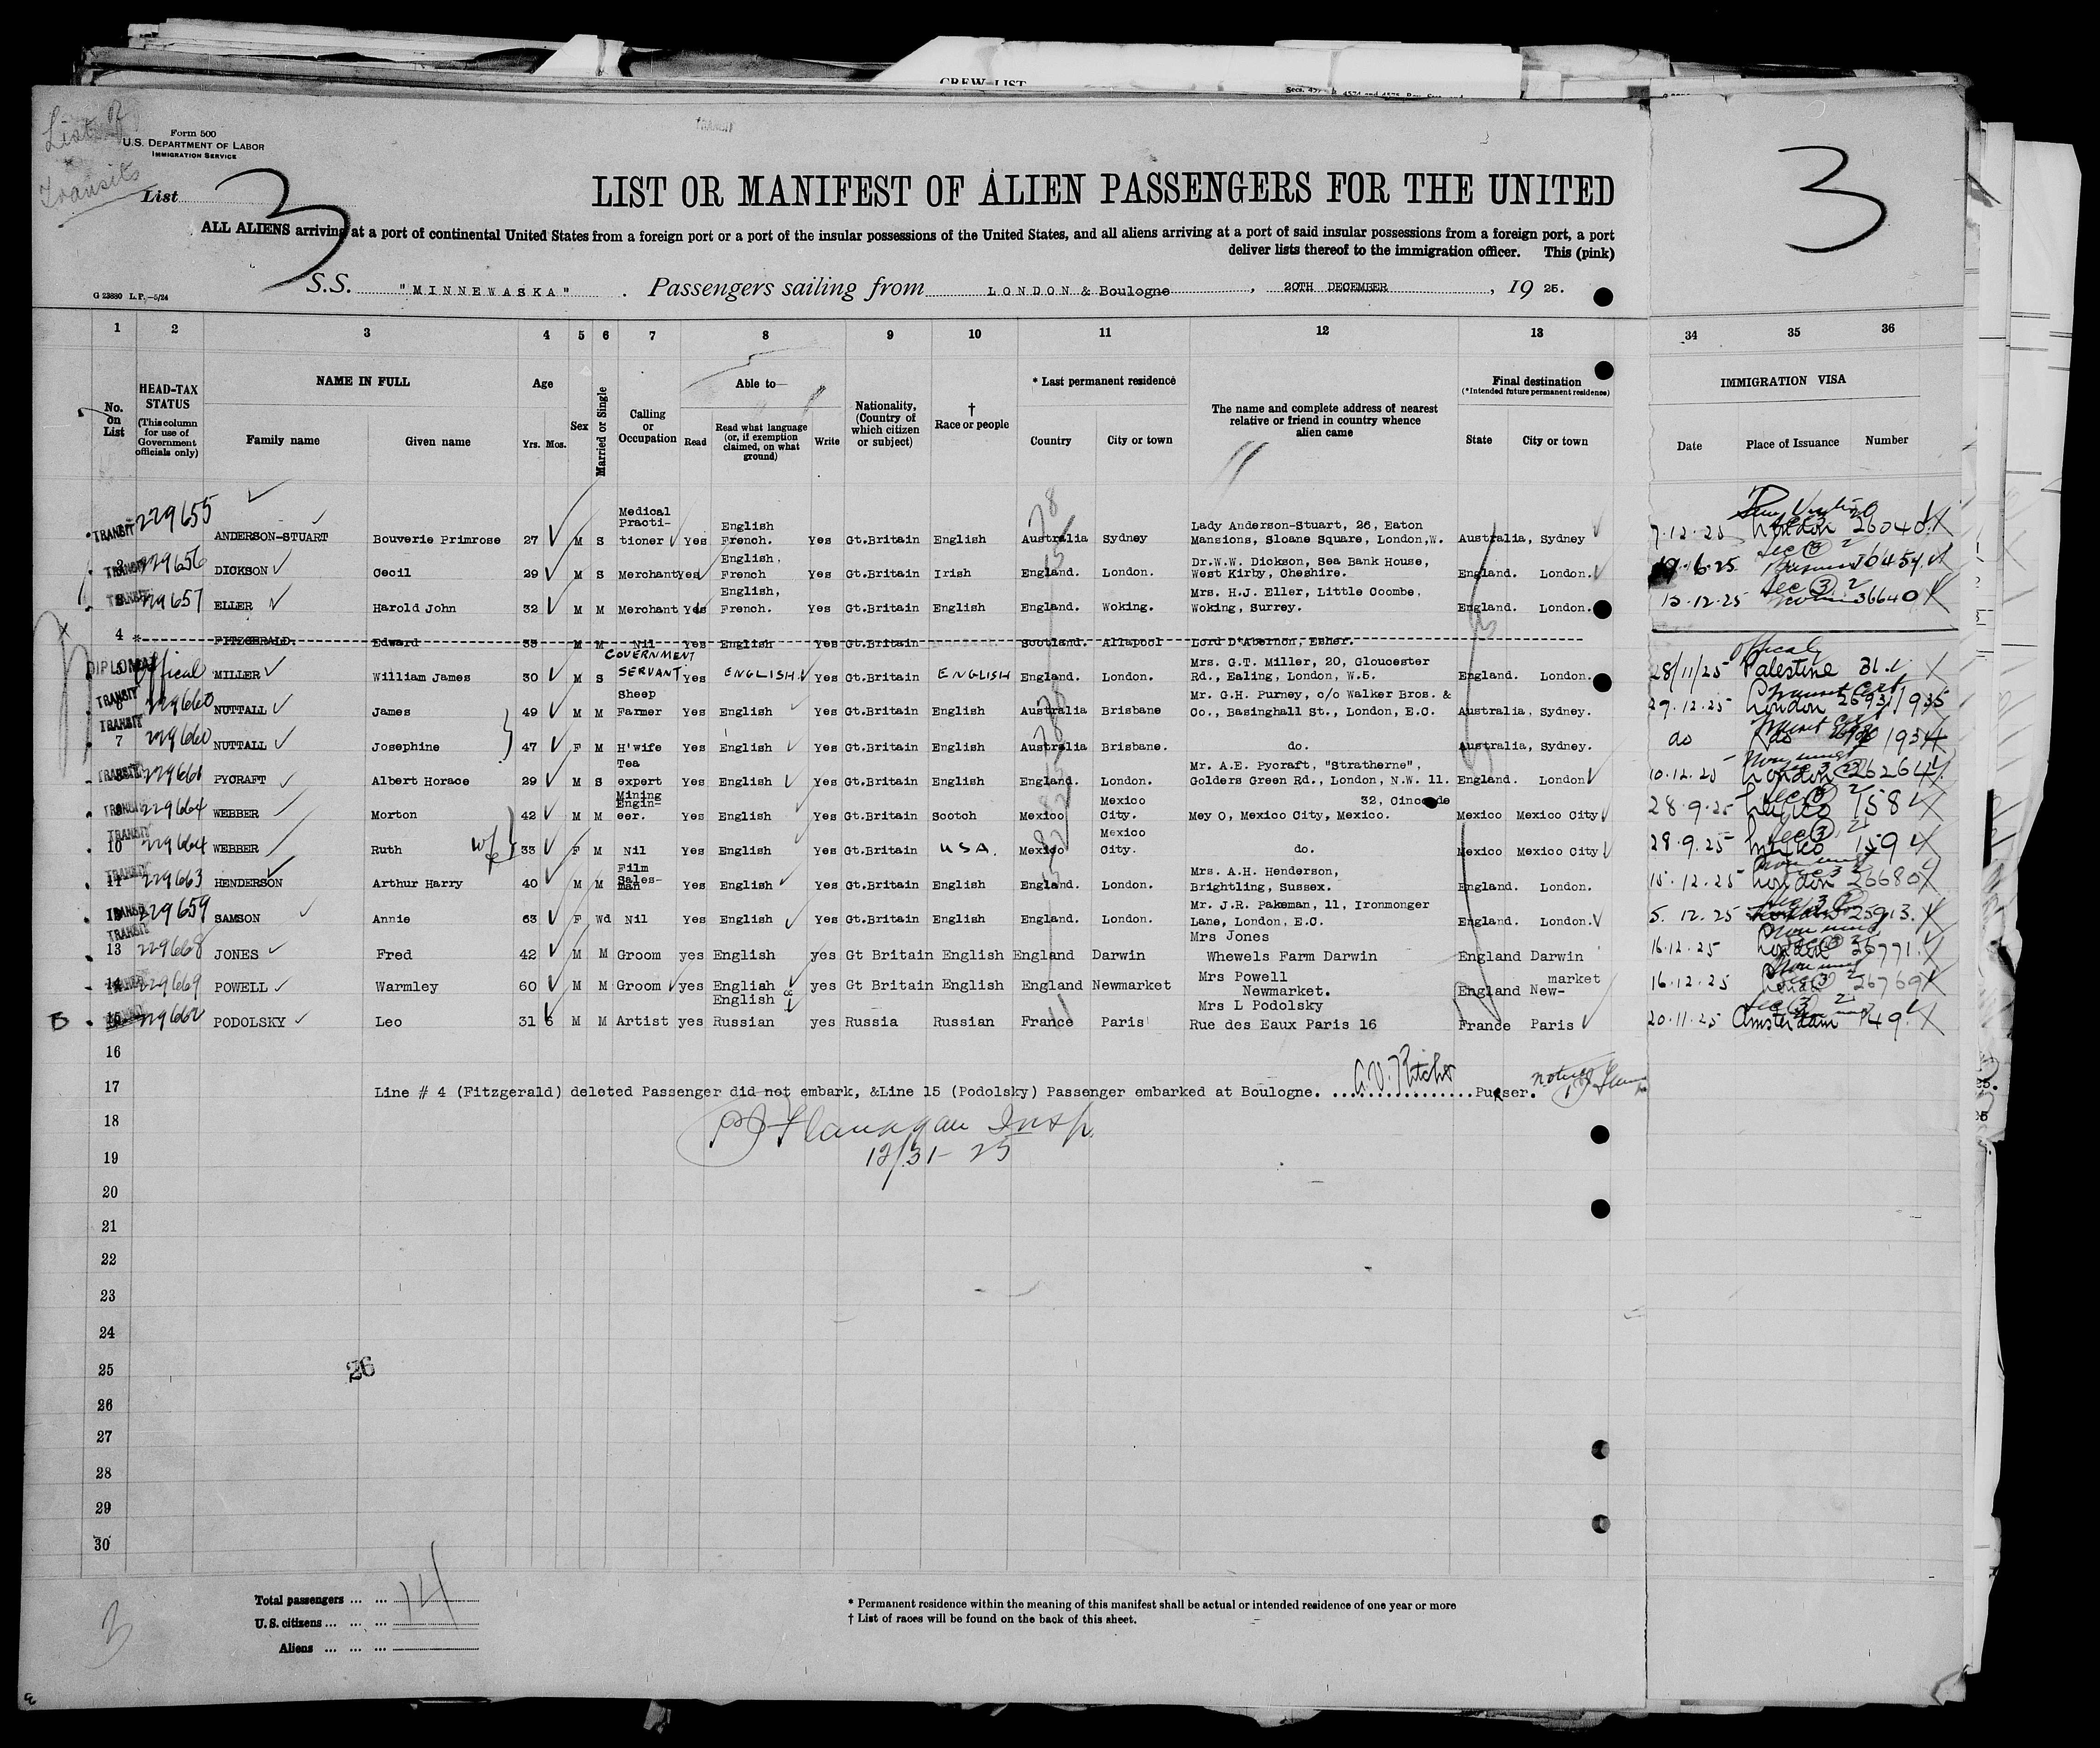 CREW LIST
List of
Transits
Form 500
U.S. DEPARTMENT OF LABOR
IMMIGRATION SERVICE
TRANSIT
List 3
3
LIST OR MANIFEST OF ALIEN PASSENGERS FOR THE UNITED
ALL ALIENS arriving at a port of continental United States from a foreign port or a port of the insular possessions of the United States, and all aliens arriving at a port of said insular possessions from a foreign port, a port
deliver lists thereof to the immigration officer. This (pink)
G 23880 L.P.—5/24
S.S. "MINNEWASKA" . Passengers sailing from LONDON & Boulogne , 20TH DECEMBER , 19 25.
1 2 3 4 5 6 7 8 9 10 11 12 13 34 35 36
No. on List
HEAD-TAX STATUS
(This column for use of Government officials only)
NAME IN FULL
Family name Given name
Age
Yrs. Mos.
Sex
Married or Single
Calling or Occupation
Able to—
Read
Read what language (or, if exemption claimed, on what ground)
Write
Nationality, (Country of which citizen or subject)
† Race or people
* Last permanent residence
Country City or town
The name and complete address of nearest relative or friend in country whence alien came
Final destination
(*Intended future permanent residence)
State City or town
IMMIGRATION VISA
Date Place of Issuance Number
TRANSIT 229655 ANDERSON-STUART Bouverie Primrose 27 M S Medical Practi-tioner Yes English French. Yes Gt.Britain English Australia Sydney Lady Anderson-Stuart, 26, Eaton Mansions, Sloane Square, London,W. Australia, Sydney 7.12.25 London 26040
TRANSIT 229656 DICKSON Cecil 29 M S Merchant Yes English, French Yes Gt.Britain Irish England. London. Dr.W.W. Dickson, Sea Bank House, West Kirby, Cheshire. England. London.
TRANSIT 229657 ELLER Harold John 32 M M Merchant Yes English, French. Yes Gt.Britain English England. Woking. Mrs. H.J. Eller, Little Coombe, Woking, Surrey. England. London. 36640
4 * FITZGERALD. Edward 35 M M Nil Yes English Yes Gt.Britain Scotland. Allapool Lord D'Abernon, Esher.
DIPLOMAT Official MILLER William James 30 M S GOVERNMENT SERVANT Yes ENGLISH Yes Gt.Britain ENGLISH England. London. Mrs. G.T. Miller, 20, Gloucester Rd., Ealing, London, W.5. England. London. 28/11/25 Official Palestine 31
TRANSIT 229660 NUTTALL James 49 M M Sheep Farmer Yes English Yes Gt.Britain English Australia Brisbane Mr. G.H. Purney, c/o Walker Bros. & Co., Basinghall St., London, E.C. Australia, Sydney. London 1935
TRANSIT 7 229660 NUTTALL Josephine 47 F M H'wife Yes English Yes Gt.Britain English Australia Brisbane. do. Australia, Sydney. do do 1934
TRANSIT 229661 PYCRAFT Albert Horace 29 M S Tea expert Yes English Yes Gt.Britain English England. London. Mr. A.E. Pycraft, "Stratherne", Golders Green Rd., London, N.W. 11. England. London 10.12.25 London 26264
TRANSIT 229664 WEBBER Morton 42 M M Mining Engin-eer. Yes English Yes Gt.Britain Scotch Mexico Mexico City. 32, Cinco de Mey O, Mexico City, Mexico. Mexico Mexico City 28.9.25 Mexico 158
TRANSIT 10 229664 WEBBER Ruth wife 33 F M Nil Yes English Yes Gt.Britain USA. Mexico Mexico City. do. Mexico Mexico City 28.9.25 Mexico 159
TRANSIT 11 229663 HENDERSON Arthur Harry 40 M M Film Sales-man Yes English Yes Gt.Britain English England. London. Mrs. A.H. Henderson, Brightling, Sussex. England. London. 15.12.25 London 26680
TRANSIT 229659 SAMSON Annie 63 F Wd Nil Yes English Yes Gt.Britain English England. London. Mr. J.R. Pakeman, 11, Ironmonger Lane, London, E.C. England. London. 5.12.25 London 25913
TRANSIT 13 229668 JONES Fred 42 M M Groom yes English yes Gt Britain English England Darwin Mrs Jones Whewels Farm Darwin England Darwin 16.12.25 London 26771
14 229669 POWELL Warmley 60 M M Groom yes English yes Gt Britain English England Newmarket Mrs Powell Newmarket. England New-market 16.12.25 London 26769
B 15 229662 PODOLSKY Leo 31 6 M M Artist yes English & Russian yes Russia Russian France Paris Mrs L Podolsky Rue des Eaux Paris 16 France Paris 20.11.25 Amsterdam 149
16
17 Line # 4 (Fitzgerald) deleted Passenger did not embark, &Line 15 (Podolsky) Passenger embarked at Boulogne. ................Purser.
18 Flanagan Insp.
19 12/31-25
20
21
22
23
24
25 26
26
27
28
29
30
Total passengers ... ... 14
U.S. citizens ... ... ...
Aliens ... ... ...
* Permanent residence within the meaning of this manifest shall be actual or intended residence of one year or more
† List of races will be found on the back of this sheet.
3